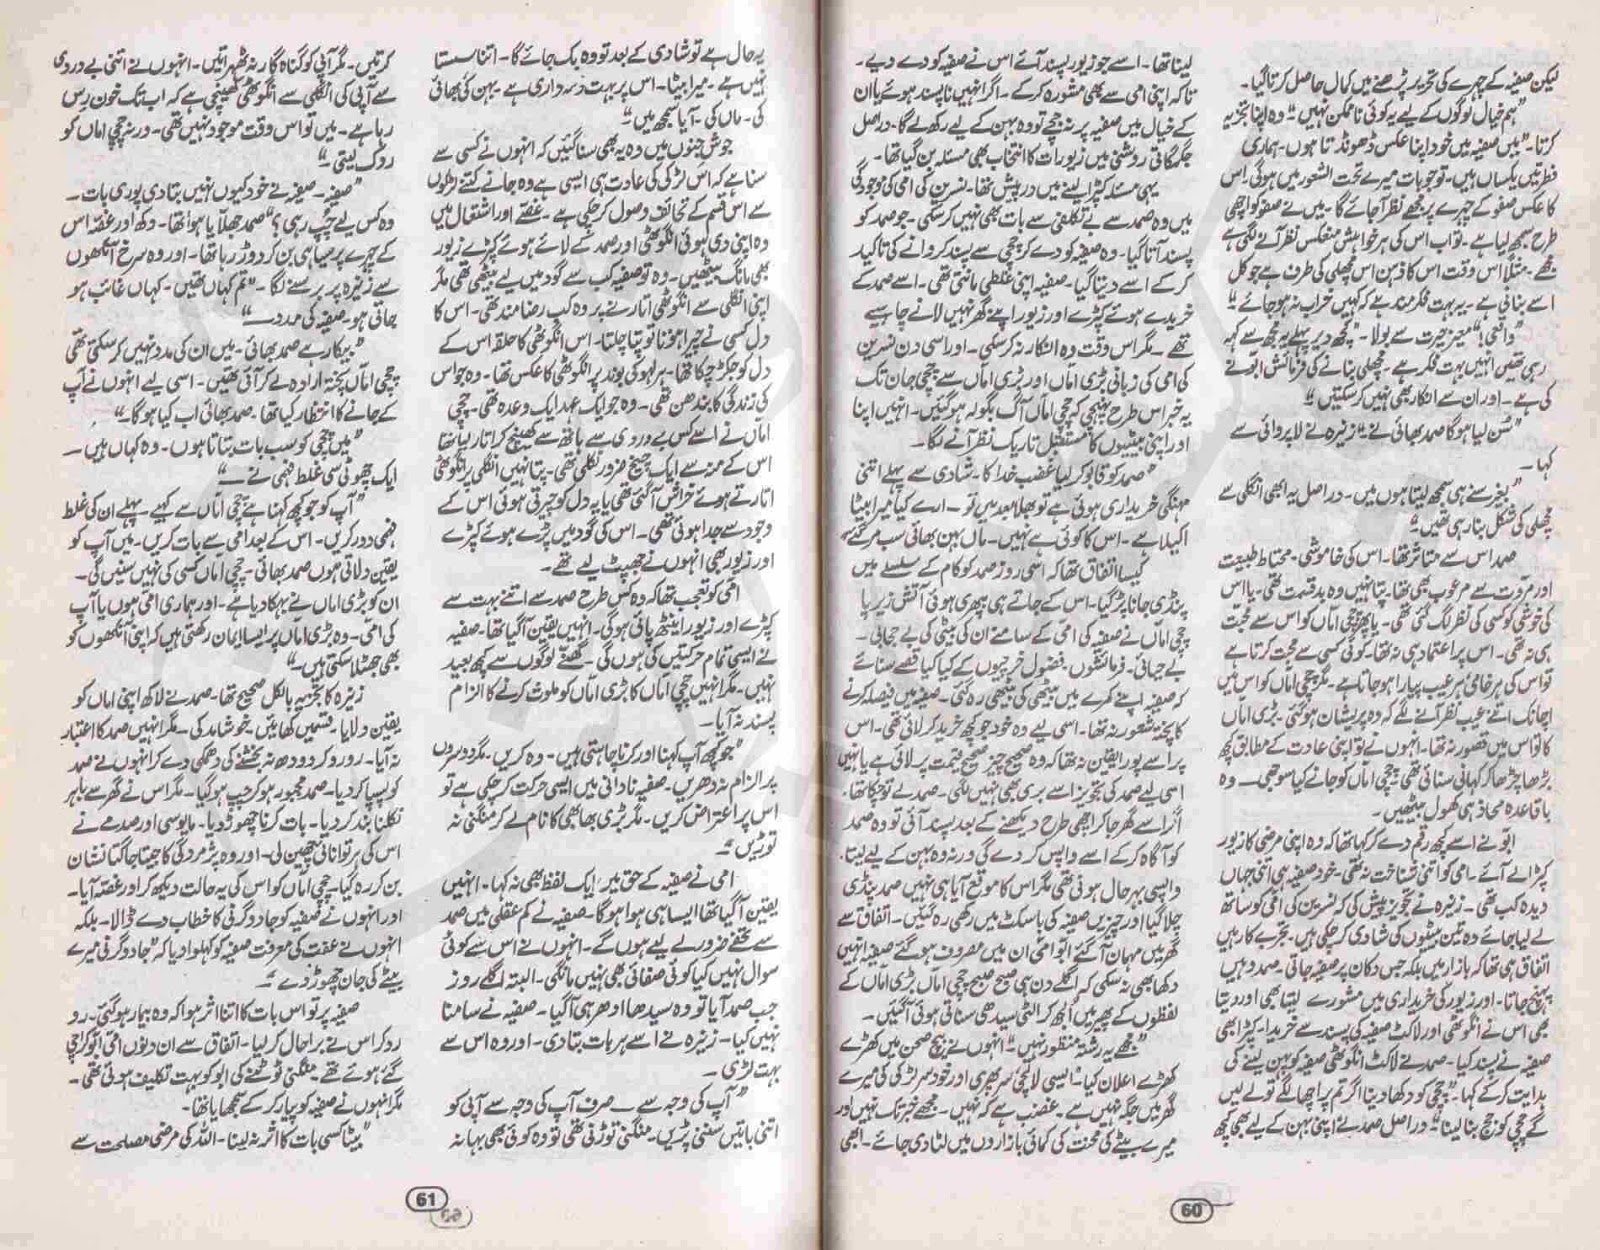 لیکن صفیہ کے چہرے کی تحریر پڑھنے میں کمال حاصل کرتا گیا۔
"ہم خیال لوگوں کے لیے یہ کوئی ناممکن نہیں" وہ اپنا تجزیہ
کرتا۔ "میں صفیہ میں خود اپنا عکس ڈھونڈتا ہوں۔ ہماری
فطرتیں یکساں ہیں۔ تو جو بات میرے تحت الشعور میں ہوگی اس
کا عکس صفو کے چہرے پر مجھے نظر آجائے گا۔ میں نے صفو کو اچھی
طرح سمجھ لیا ہے۔ تو اب اس کی ہر خواہش منعکس نظر آنے لگی ہے
مجھے۔ مثلاً اس وقت اس کا ذہن اس مچھلی کی طرف ہے جو کل
اسے بنانی ہے۔ یہ بہت فکرمند ہے کہ کہیں خراب نہ ہوجائے۔"
"واقعی!" معیز حیرت سے بولا۔ "کچھ دیر پہلے یہ مجھ سے کہہ
رہی تھیں انہیں بہت فکر ہے۔ مچھلی بنانے کی فرمائش ابو نے
کی ہے۔ اور ان سے انکار بھی نہیں کرسکتیں۔"
"سن لیا ہوگا صمد بھائی نے" زنیرہ نے لاپروائی سے
کہا۔
"بغیر سنے ہی سمجھ لیتا ہوں میں۔ دراصل یہ ابھی انگلی سے
مچھلی کی شکل بنا رہی تھیں۔"
صمد اس سے متاثر تھا۔ اس کی خاموشی۔ محتاط طبیعت
اور مروت سے مرعوب بھی تھا۔ پتا نہیں وہ بدقسمت تھی۔ یا اس
کی خوشی کو کسی کی نظر لگ گئی تھی۔ یا پھر چچی اماں کو اس سے محبت
ہی نہ تھی۔ اس پر اعتماد ہی نہ تھا۔ کوئی کسی سے محبت کرتا ہے
تو اس کی ہر خامی ہر عیب پیارا ہوجاتا ہے۔ مگر چچی اماں کو اس میں
اچانک اتنے عیب نظر آنے لگے کہ وہ پریشان ہوگئی۔ بڑی اماں
کا تو اس میں قصور نہ تھا۔ انہوں نے تو اپنی عادت کے مطابق کچھ
بڑھا چڑھا کر کہانی سنائی تھی۔ چچی اماں کو جانے کیا سوجھی۔ وہ
باقاعدہ محاذ ہی کھول بیٹھیں۔
ابو نے اسے کچھ رقم دے کر کہا تھا کہ وہ اپنی مرضی کا زیور
کپڑا لے آئے۔ امی کو اتنی شناخت نہ تھی۔ خود صفیہ ہی اتنی جہاں
دیدہ کب تھی۔ زنیرہ نے تجویز پیش کی کہ نسرین کی امی کو ساتھ
لے لیا جائے وہ تین بیٹیوں کی شادی کرچکی ہیں۔ تجربے کار ہیں
اتفاق ہی تھا کہ بازار میں بلکہ جس دکان پر صفیہ جاتی۔ صمد وہیں
پہنچ جاتا۔ اور زیور کی خریداری میں مشورے لیتا بھی اور دیتا
بھی اس نے انگوٹھی اور لاکٹ صفیہ کی پسند سے خریدا۔ کپڑا بھی
صفیہ نے پسند کیا۔ صمد نے لاکٹ انگوٹھی صفیہ کو پہن لینے کی
ہدایت کرکے کہا۔ "چچی کو دکھا دینا اگر تم پر اچھا لگے تو لے لیں
گے چچی کو جج بنا لینا" دراصل صمد نے اپنی بہن کے لیے بھی کچھ
لینا تھا۔ اسے جو زیور پسند آئے اس نے صفیہ کو دے دیے۔
تاکہ اپنی امی سے بھی مشورہ کرکے۔ اگر انہیں ناپسند ہوئے یا ان
کے خیال میں صفیہ پر نہ جچے تو وہ بہن کے لیے رکھ لے گا۔ دراصل
جگمگاتی روشنی میں زیورات کا انتخاب بھی مسئلہ بن گیا تھا۔
یہی مسئلہ کپڑا لینے میں درپیش تھا۔ نسرین کی امی کی موجودگی
میں وہ صمد سے بے تکلفی سے بات بھی نہیں کرسکی۔ جو صمد کو
پسند آتا گیا۔ وہ صفیہ کو دے کر چچی سے پسند کروانے کی تاکید
کرکے اسے دیتا گیا۔ صفیہ اپنی غلطی مانتی تھی۔ اسے صمد کے
خریدے ہوئے کپڑے اور زیور اپنے گھر نہیں لانے چاہیے
تھے۔ مگر اس وقت وہ انکار نہ کرسکی۔ اور اسی دن نسرین
کی امی کی زبانی بڑی اماں اور بڑی اماں سے چچی جان تک
یہ خبر اس طرح پہنچی کہ چچی اماں آگ بگولہ ہوگئیں۔ انہیں اپنا
اور اپنی بیٹیوں کا مستقبل تاریک نظر آنے لگا۔
"صمد کو قابو کرلیا غضب خدا کا۔ شادی سے پہلے اتنی
مہنگی خریداری ہوئی ہے تو بھلا بعد میں تو۔ ارے کیا میرا بیٹا
اکیلا ہے۔ اس کا کوئی ہے نہیں۔ ماں بہن بھائی سب مرگئے"
کیسا اتفاق تھا کہ اسی روز صمد کو کام کے سلسلے میں
پنڈی جانا پڑگیا۔ اس کے جاتے ہی بپھری ہوئی آتش زیر پا
چچی اماں نے صفیہ کی امی کے سامنے ان کی بیٹی کی بے حجابی۔
بے حیائی۔ فرمائشوں۔ فضول خرچیوں کے کیا کیا قصے سنائے
کہ صفیہ اپنے کمرے میں بیٹھی کی بیٹھی رہ گئی۔ صفیہ میں فیصلہ کرنے
کا پختہ شعور نہ تھا۔ اسی لیے وہ خود جو کچھ خرید کر لائی تھی۔ اس
پر اسے پورا یقین نہ تھا کہ وہ صحیح چیز صحیح قیمت پر لائی ہے یا نہیں
اسی لیے صمد کی تجویز اسے بری بھی نہیں لگی۔ صمد نے تو کہا تھا۔
اگر اسے گھر جاکر اچھی طرح دیکھنے کے بعد پسند آئی تو وہ صمد
کو آگاہ کرکے اسے واپس کردے گی ورنہ وہ بہن کے لیے لیتا۔
واپسی بہرحال ہونی تھی مگر اس کا موقع آیا ہی نہیں صمد پنڈی
چلا گیا اور چیزیں صفیہ کی باسکٹ میں رکھی رہ گئیں۔ اتفاق سے
گھر میں مہمان آگئے ابو امی ان میں مصروف ہوگئے صفیہ انہیں
دکھا بھی نہ سکی کہ اگلے دن ہی صبح صبح چچی اماں بڑی اماں کے
لفظوں کے پھیر میں الجھ کر الٹی سیدھی سناتی ہوئی آگئیں۔
"مجھے یہ رشتہ منظور نہیں" انہوں نے بیچ صحن میں کھڑے
کھڑے اعلان کیا۔ "ایسی لالچی سرپھری اور خودسر لڑکی کی میرے
گھر میں جگہ نہیں ہے۔ غضب ہے کہ نہیں۔ مجھے خبر تک نہیں اور
میرے بیٹے کی محنت کی کمائی بازاروں میں لٹا دی جائے۔ ابھی
60
یہ حال ہے تو شادی کے بعد تو وہ بک جائے گا۔ اتنا سستا
نہیں ہے۔ میرا بیٹا۔ اس پر بہت ذمہ داری ہے۔ بہن کی بھائی
کی۔ ماں کی۔ آیا سمجھ میں"
جوش جنوں میں وہ یہ بھی سنا گئیں کہ انہوں نے کسی سے
سنا ہے کہ اس لڑکی کی عادت ہی ایسی ہے وہ جانے کتنے لڑکوں
سے اس قسم کے تحائف وصول کرچکی ہے۔ غصے اور اشتعال میں
وہ اپنی دی ہوئی انگوٹھی اور صمد کے لائے ہوئے کپڑے زیور
بھی مانگ بیٹھیں۔ وہ تو صفیہ کب سے گود میں لیے بیٹھی تھی مگر
اپنی انگلی سے انگوٹھی اتارنے پر وہ کب رضامند تھی۔ اس کا
دل کسی نے چیرا ہوتا تو پتا چلتا۔ اس انگوٹھی کا حلقہ اس کے
دل کو جکڑ چکا تھا۔ ہر لہو کی بوند پر انگوٹھی کا عکس تھا۔ وہ جو اس
کی زندگی کا بندھن تھی۔ وہ جو ایک عہد ایک وعدہ تھی۔ چچی
اماں نے اسے کس بے دردی سے ہاتھ سے کھینچ کر اتار لیا تھا
اس کے منہ سے ایک چیخ ضرور نکلی تھی۔ پتا نہیں انگلی پر انگوٹھی
اتارتے ہوئے خراش آگئی تھی یا یہ دل کو چیرتی ہوئی اس کے
وجود سے جدا ہوئی تھی۔ اس کی گود میں پڑے ہوئے کپڑے
اور زیور بھی انہوں نے جھپٹ لیے تھے۔
امی کو تعجب تھا کہ وہ کس طرح صمد سے اتنے بہت سے
کپڑے اور زیور اینٹھ پائی ہوگی۔ انہیں یقین آگیا تھا۔ صفیہ
نے ایسی تمام حرکتیں کی ہوں گی۔ گھنے لوگوں سے کچھ بعید
نہیں۔ مگر انہیں چچی اماں کا بڑی اماں کو ملوث کرنے کا الزام
پسند نہ آیا۔
"جو کچھ آپ کہنا اور کرنا چاہتی ہیں۔ وہ کریں۔ مگر دوسروں
پر الزام نہ دھریں۔ صفیہ نادانی میں ایسی حرکت کرچکی ہے تو
اس پر اعتراض کریں۔ مگر بڑی بھابھی کا نام لے کر منگنی نہ
توڑیں۔"
امی نے صفیہ کے حق میں ایک لفظ بھی نہ کہا۔ انہیں
یقین آگیا تھا ایسا ہی ہوا ہوگا۔ صفیہ نے کم عقلی میں صمد
سے تحفے ضرور لے لیے ہوں گے۔ انہوں نے اس سے کوئی
سوال نہیں کیا کوئی صفائی بھی نہیں مانگی۔ البتہ اگلے روز
جب صمد آیا تو وہ سیدھا ادھر ہی آگیا۔ صفیہ نے سامنا
نہیں کیا۔ زنیرہ نے اسے ہر بات بتا دی۔ اور وہ اس سے
بہت لڑی۔
"آپ کی وجہ سے۔ صرف آپ کی وجہ سے آپی کو
اتنی باتیں سننی پڑیں۔ منگنی توڑنی تھی تو وہ کوئی بھی بہانہ
کرتیں۔ مگر آپی کو گناہ گار نہ ٹھہراتیں۔ انہوں نے اتنی بے دردی
سے آپی کی انگلی سے انگوٹھی کھینچی ہے کہ اب تک خون رس
رہا ہے۔ میں تو اس وقت موجود نہیں تھی۔ ورنہ چچی اماں کو
روک لیتی۔"
"صفیہ۔ صفیہ نے خود کیوں نہیں بتا دی پوری بات۔
وہ کس لیے چپ رہی؟" صمد جھلایا ہوا تھا۔ دکھ اور غصہ اس
کے چہرے پر سیاہی بن کر دوڑ رہا تھا۔ اور وہ سرخ آنکھوں
سے زنیرہ پر برسنے لگا۔ "تم کہاں تھیں۔ کہاں غائب ہو
جاتی ہو۔ صفیہ کی مدد۔"
"بیکار ہے صمد بھائی۔ میں ان کی مدد نہیں کرسکتی تھی
چچی اماں پختہ ارادہ لے کر آئی تھیں۔ اسی لیے انہوں نے آپ
کے جانے کا انتظار کیا تھا۔ صمد بھائی اب کیا ہوگا۔"
"میں چچی کو سب بات بتاتا ہوں۔ وہ کہاں ہیں۔
ایک چھوٹی سی غلط فہمی نے۔"
"آپ کو جو کچھ کہنا ہے چچی اماں سے کہیے۔ پہلے ان کی غلط
فہمی دور کریں۔ اس کے بعد امی سے بات کریں۔ میں آپ کو
یقین دلاتی ہوں صمد بھائی۔ چچی اماں کسی کی نہیں سنیں گی۔
ان کو بڑی اماں نے بہکا دیا ہے۔ اور ہماری امی ہوں یا آپ
کی امی۔ وہ بڑی اماں پر ایسا ایمان رکھتی ہیں کہ اپنی آنکھوں کو
بھی جھٹلا سکتی ہیں۔"
زنیرہ کا تجزیہ بالکل صحیح تھا۔ صمد نے لاکھ اپنی اماں کو
یقین دلایا۔ قسمیں کھائیں۔ خوشامد کی۔ مگر انہیں صمد کا اعتبار
نہ آیا۔ رو رو کر دودھ نہ بخشنے کی دھمکی دے کر انہوں نے صمد
کو پسپا کردیا۔ صمد مجبور ہوکر چپ ہوگیا۔ مگر اس نے گھر سے باہر
نکلنا بند کردیا۔ بات کرنا چھوڑ دیا۔ مایوسی اور صدمے نے
اس کی ہر توانائی چھین لی۔ اور وہ پژمردگی کا جیتا جاگتا نشان
بن کر رہ گیا۔ چچی اماں کو اس کی یہ حالت دیکھ کر اور غصہ آیا۔
اور انہوں نے صفیہ کو جادوگرنی کا خطاب دے ڈالا۔ بلکہ
انہوں نے عفت کی معرفت صفیہ کو کہلوا دیا کہ "جادوگرنی میرے
بیٹے کی جان چھوڑ دے۔"
صفیہ پر تو اس بات کا اتنا اثر ہوا کہ وہ بیمار ہوگئی۔ رو
رو کر اس نے برا حال کرلیا۔ اتفاق سے ان دنوں امی ابو کراچی
گئے ہوئے تھے۔ منگنی ٹوٹنے کی ابو کو بہت تکلیف ہوئی تھی۔
مگر انہوں نے صفیہ کو پیار کرکے سمجھایا تھا۔
"بیٹا کسی بات کا اثر نہ لینا۔ اللہ کی مرضی مصلحت سے
61